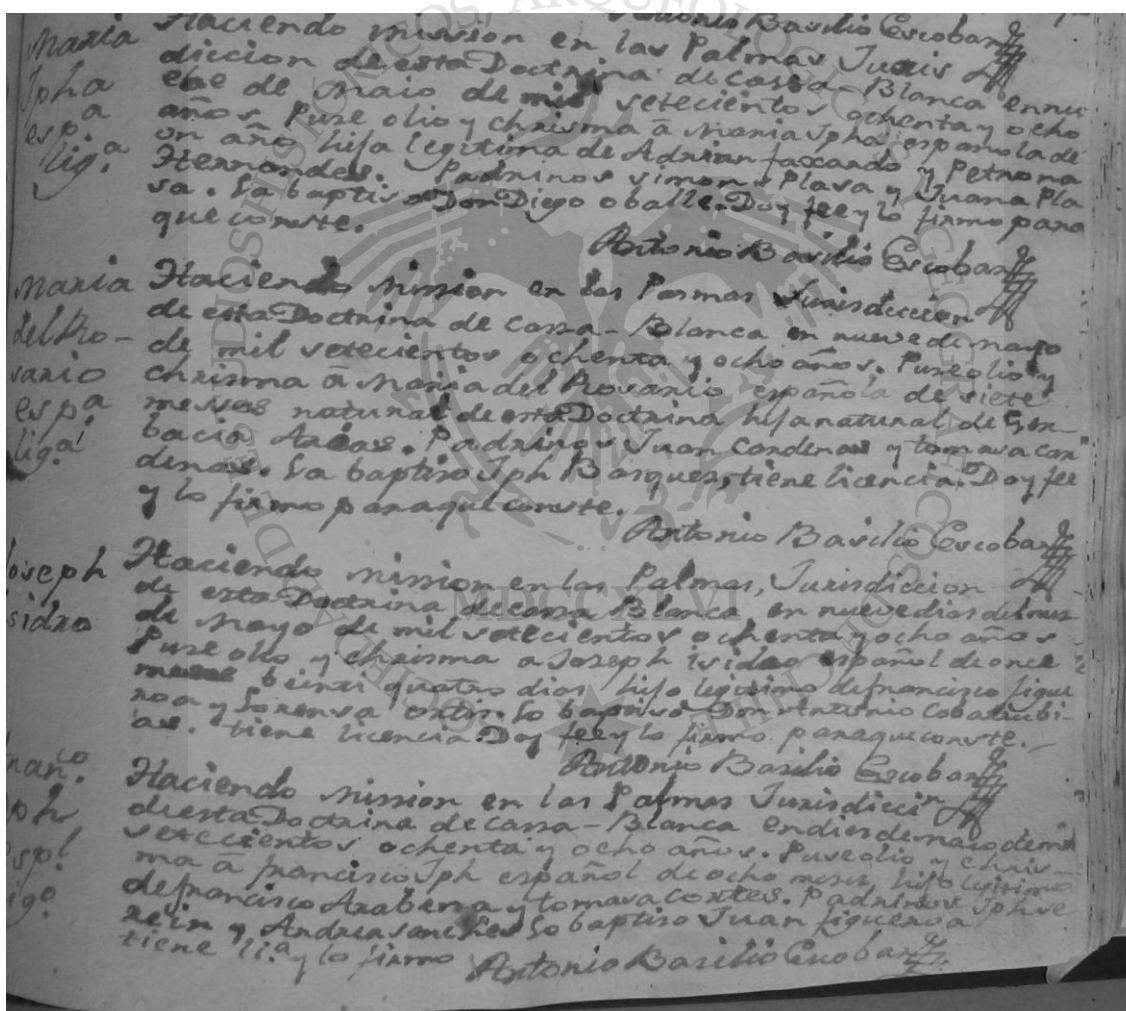 Antonio Basilio Escobar
Maria
Jpha
esp.a
lig.a
Haciendo mission en las Palmas Juris
diccion de esta Doctrina de Cassa-Blanca en nu
ebe de Maio de mil setecientos ochenta y ocho
años. Puse olio y chrisma â Maria Jpha española de
un año hija legitima de Adrian faxardo y Petrona
Hernandes. Padrinos Simon Plasa y Juana Pla
sa. La baptiso Don Diego oballe. Doy fee y lo firmo para
que conste.
Antonio Basilio Escobar
Maria
del Ro-
sario
espa
liga
Haciendo Mission en las Parmas Jurisdiccion
de esta Doctrina de Cassa-Blanca en nueve de mayo
de mil setecientos ochenta y ocho años. Puse olio y
chrisma â Maria del Rosario española de siete
messes natural de esta Doctrina hija natural de Ger-
bacia Araas. Padrinos Juan Cardenas y tomasa Car
denas. La baptiso Jph Basques, tiene licencia. Doy fee
y lo firmo para que conste.
Antonio Basilio Escobar
Joseph
isidro
Haciendo mission en las Palmas, Jurisdiccion
de esta Doctrina de cassa Blanca en nueve dias del mes
de Mayo de mil setecientos ochenta y ocho años
Puse olio y Chrisma a Joseph isidro español de once
beinti quatro dias hijo legitimo de francisco figue
roa y Lorensa ortis. Lo baptiso Don Antonio Cobarrubi-
as. tiene licencia Doy fee y lo firmo para que conste.
Antonio Basilio Escobar
ran.co
ph
espl
igo
Haciendo mission en las Palmas Jurisdiccin
de esta Doctrina de cassa-Blanca en dies de maio de mil
setecientos ochenta y ocho años. Puse olio y chris-
ma â francisco Jph español de ocho meses, hijo legitimo
de francisco Arabena y tomasa Cortes. Padrinos Jph se
rein y Andrea sanches Lo baptiso Juan figueroa
tiene li.a y lo firmo
Antonio Basilio Escobar
MDCCXLVI